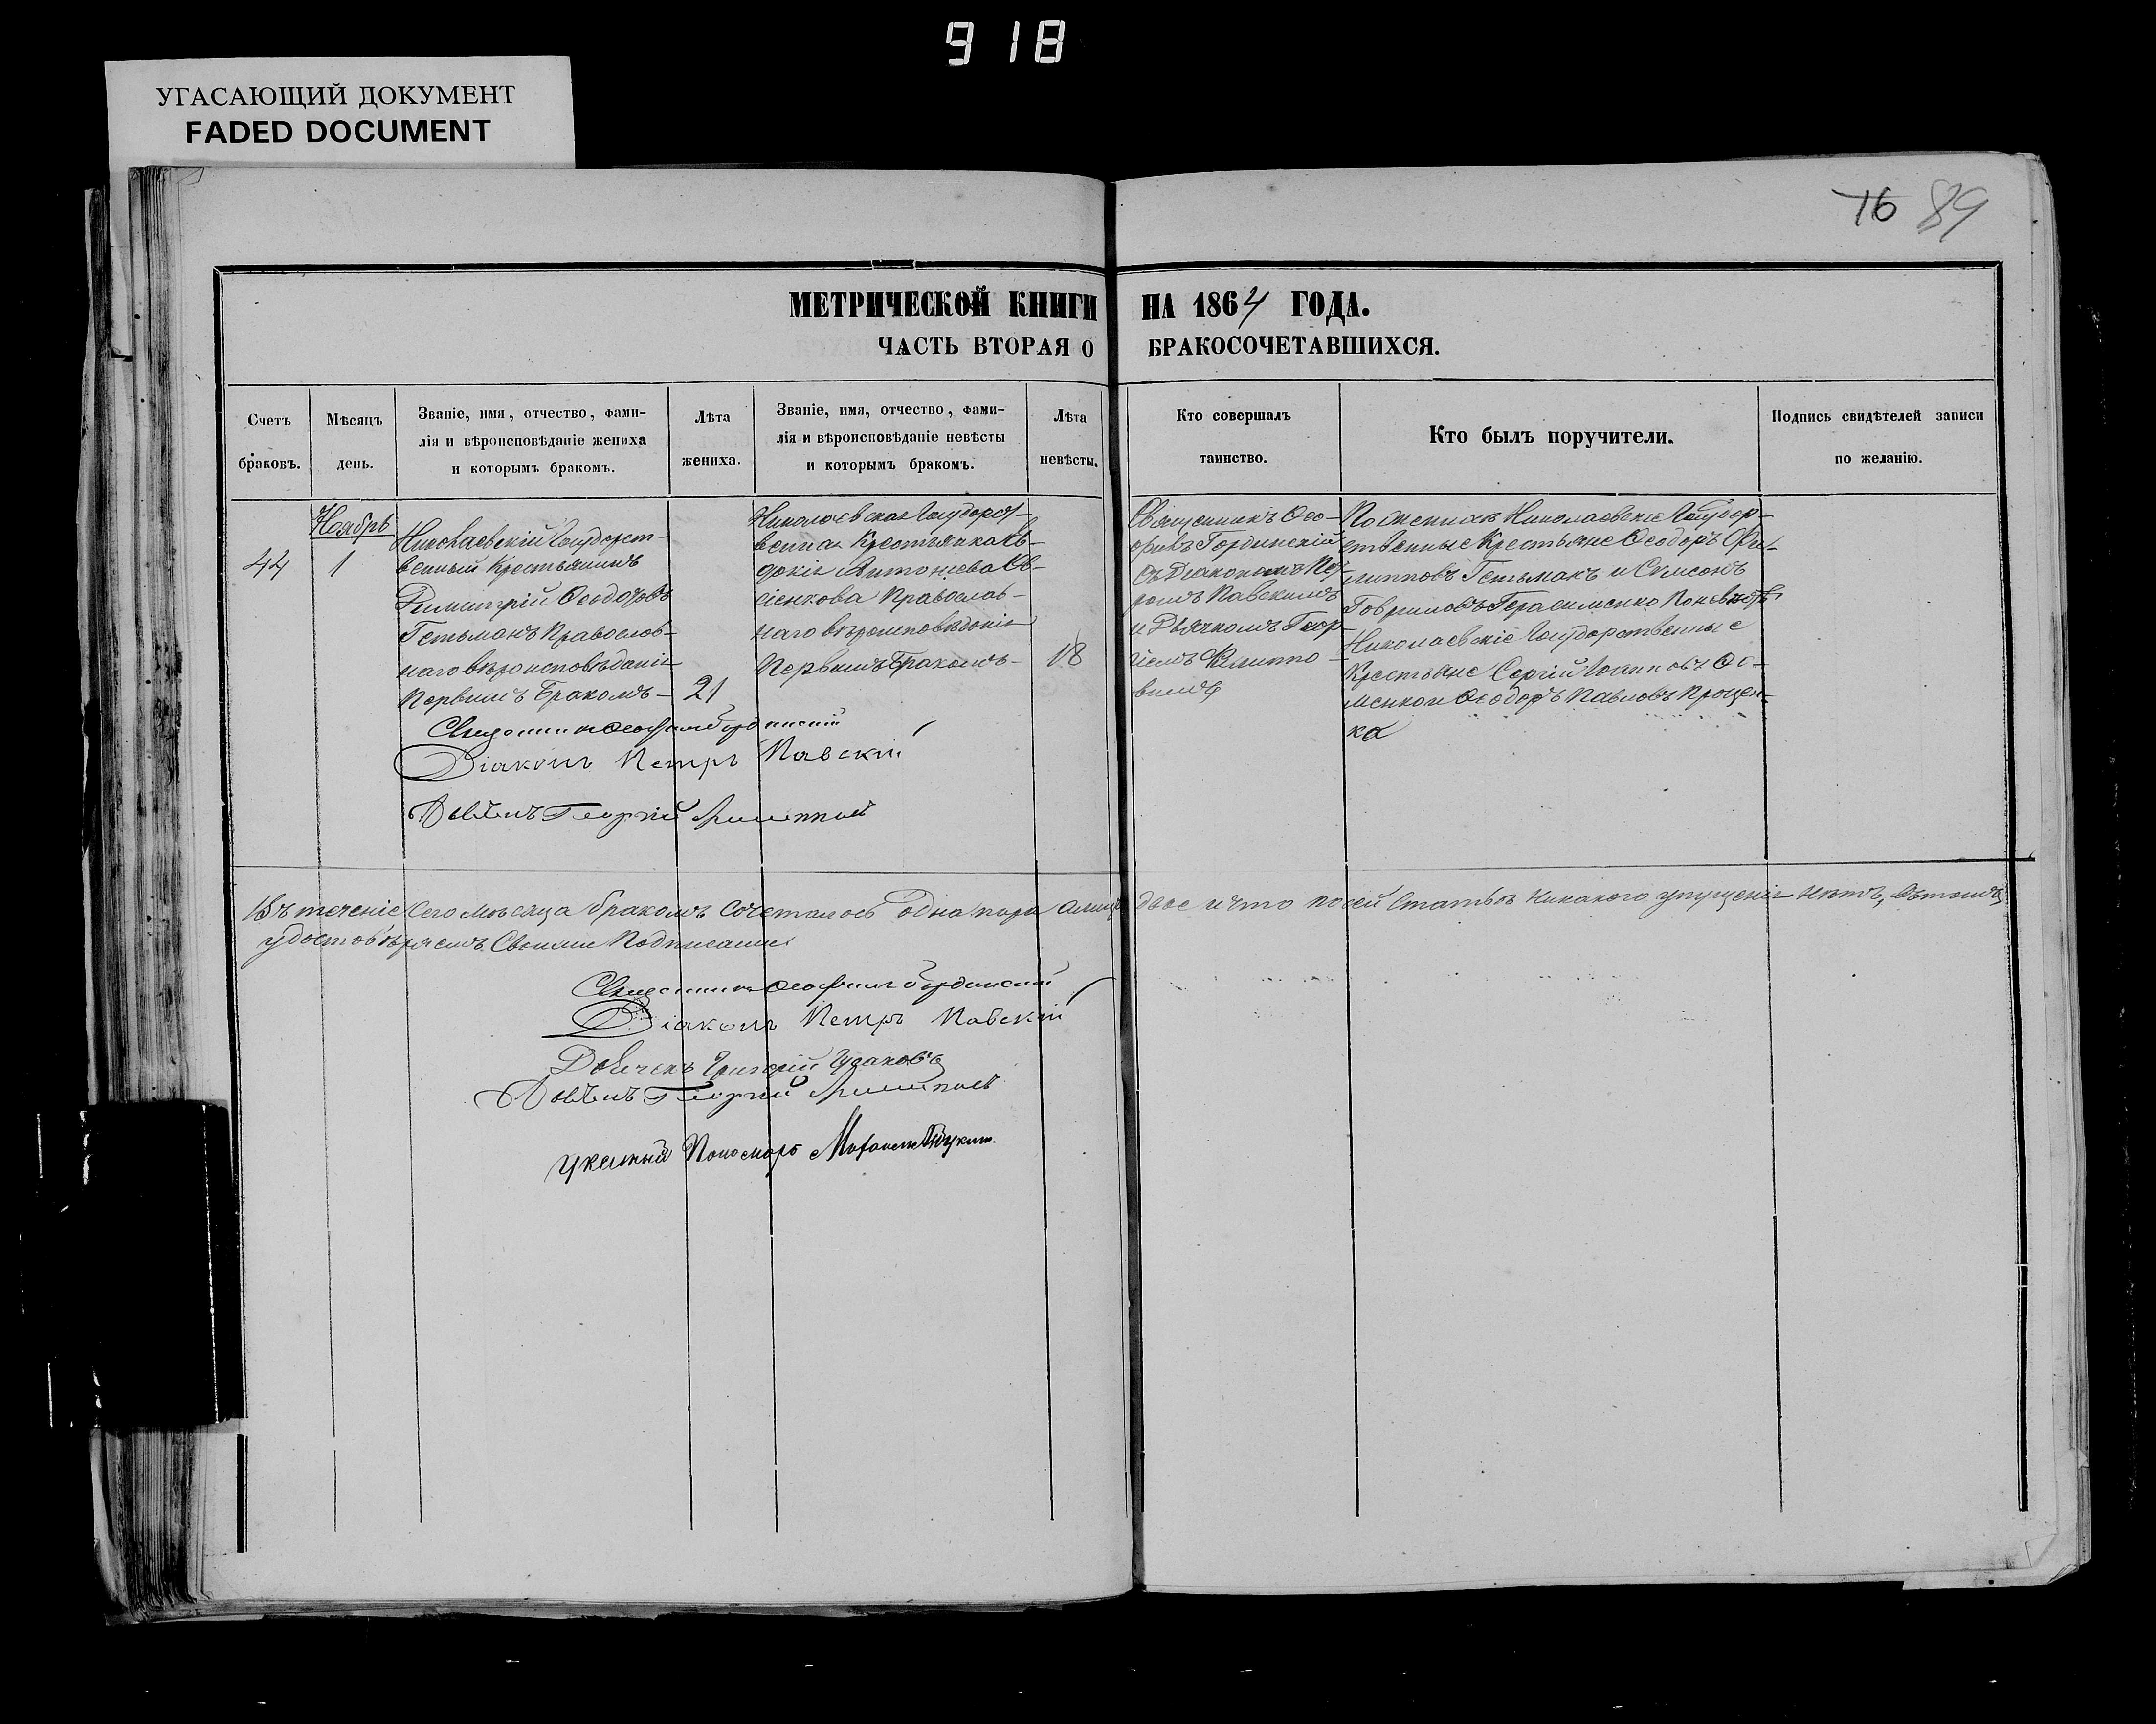 918
УГАСАЮЩИЙ ДОКУМЕНТ
FADED DOCUMENT
76 89
МЕТРИЧЕСКОЙ КНИГИ НА 1864 ГОДА.
ЧАСТЬ ВТОРАЯ О БРАКОСОЧЕТАВШИХСЯ.
Счетъ
браковъ.
Мѣсяцъ
день.
Званіе, имя, отчество, фами-
лія и вѣроисповѣданіе жениха
и которымъ бракомъ.
Лѣта
жениха.
Званіе, имя, отчество, фами-
лія и вѣроисповѣданіе невѣсты
и которымъ бракомъ.
Лѣта
невѣсты.
Кто совершалъ
таинство.
Кто былъ поручители.
Подпись свидѣтелей записи
по желанію.
44
Ноябрь
1
Николаевскій Государст-
венный Крестьянинъ
Димитрій Ѳеодоровъ
Гетьманъ Православ-
наго вѣроисповѣданія
Первымъ Бракомъ –
21
Николаевская Государст-
венная Крестьянка Ев-
докія Антоніева Ев-
сіенкова Православ-
наго вѣроисповѣданія
Первымъ Бракомъ –
18
Священникъ Ѳео-
филъ Гординскій
съ Діакономъ Пет-
ромъ Павскимъ
и Дьячкомъ Геор-
гіемъ
По женихѣ Николаевскіе Государ-
ственные Крестьяне Ѳеодоръ Фи-
липповъ Гетьманъ и Симеонъ
Гавриловъ Герасименко По невѣстѣ
Николаевскіе Государственные
Крестьяне Сергій Іоанновъ
и Ѳеодоръ Павловъ Процен-
ка
Священникъ Ѳеофилъ Гординскій
Діаконъ Петръ Павскій
Дьячекъ Георгій
Въ теченіе Сего Мѣсяца бракомъ Сочеталось Одна пара а лицъ двое и что по сей Статьѣ Никакого упущенія нѣтъ, Въ томъ
удостовѣряемъ Своими Подписами
Священникъ Ѳеофилъ Гординскій
Діаконъ Петръ Павскій
Дьячекъ Григорій
Дьячекъ Георгій
Пономарь